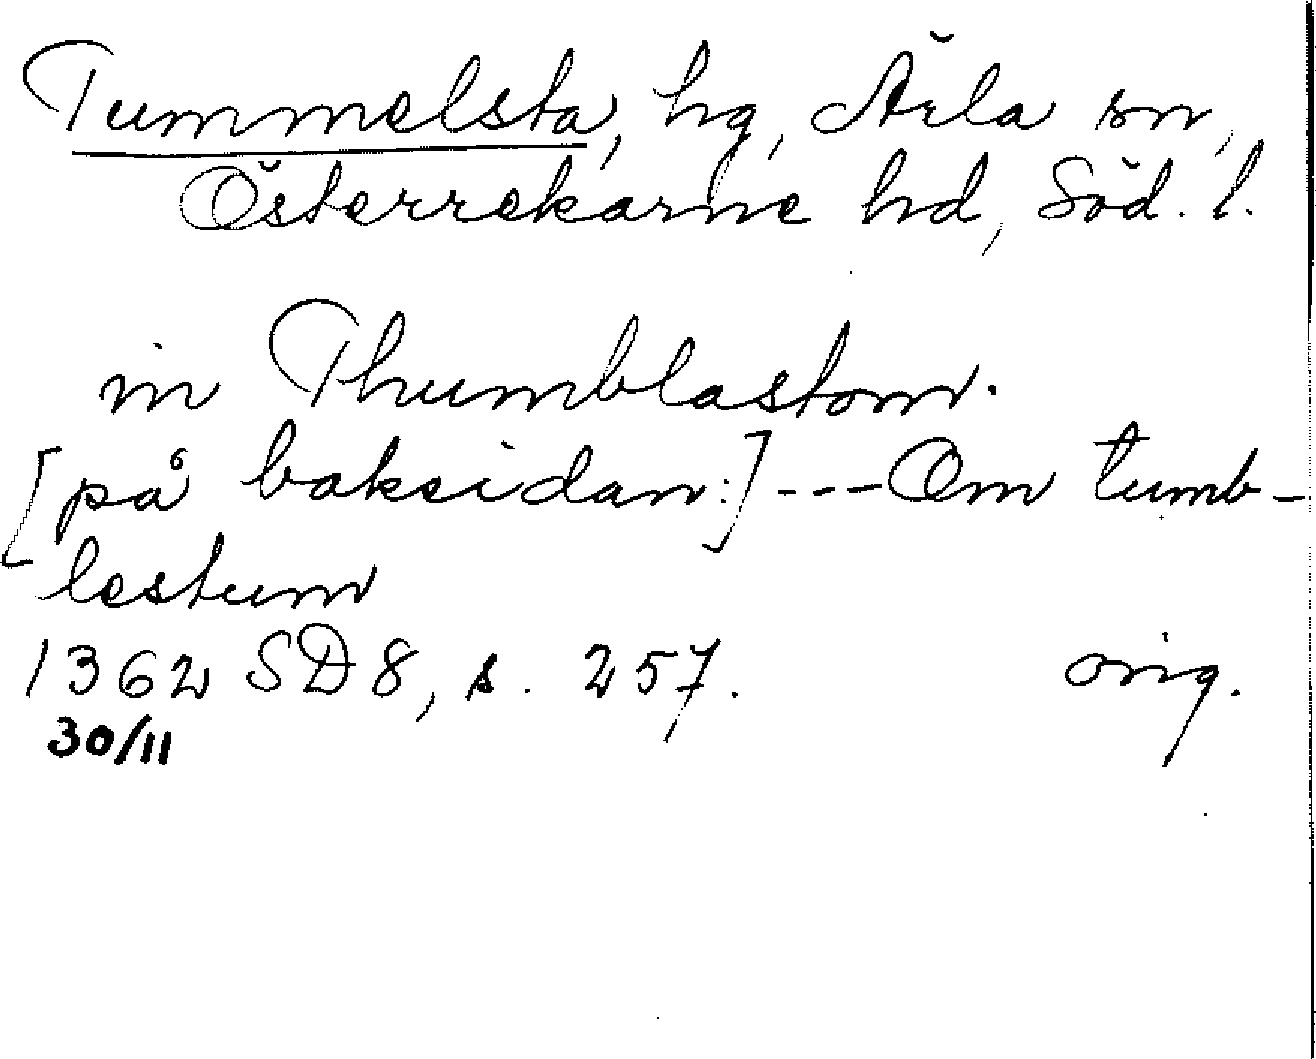 Tummelsta, hg, Ärla sn,
Österrekarne hd, Söd. l.
in Thumblastom.
[på baksidan:] --- Om tumb-
lestum
1362 SD 8, s. 257. orig.
30/11